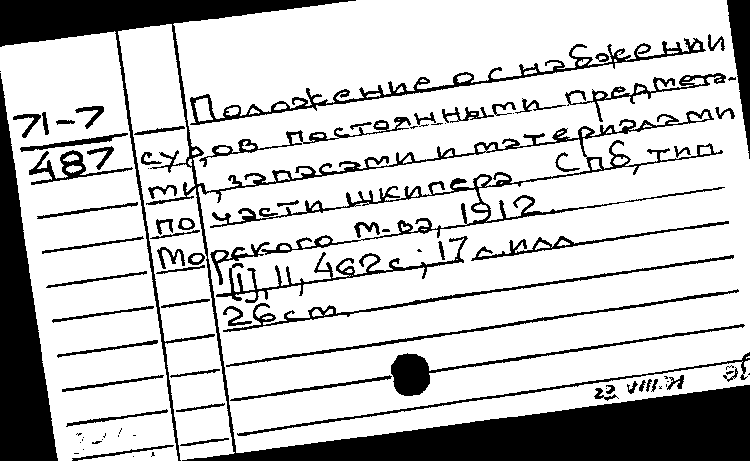 71-7
487
Положение о снабжении
судов постоянными предмета-
ми, запасами и материалами
по части шкипера. Спб, тип.
Морского м-ва, 1912.
[1], II, 462 с.; 17 л. илл.
26 см.
23 VIII.71